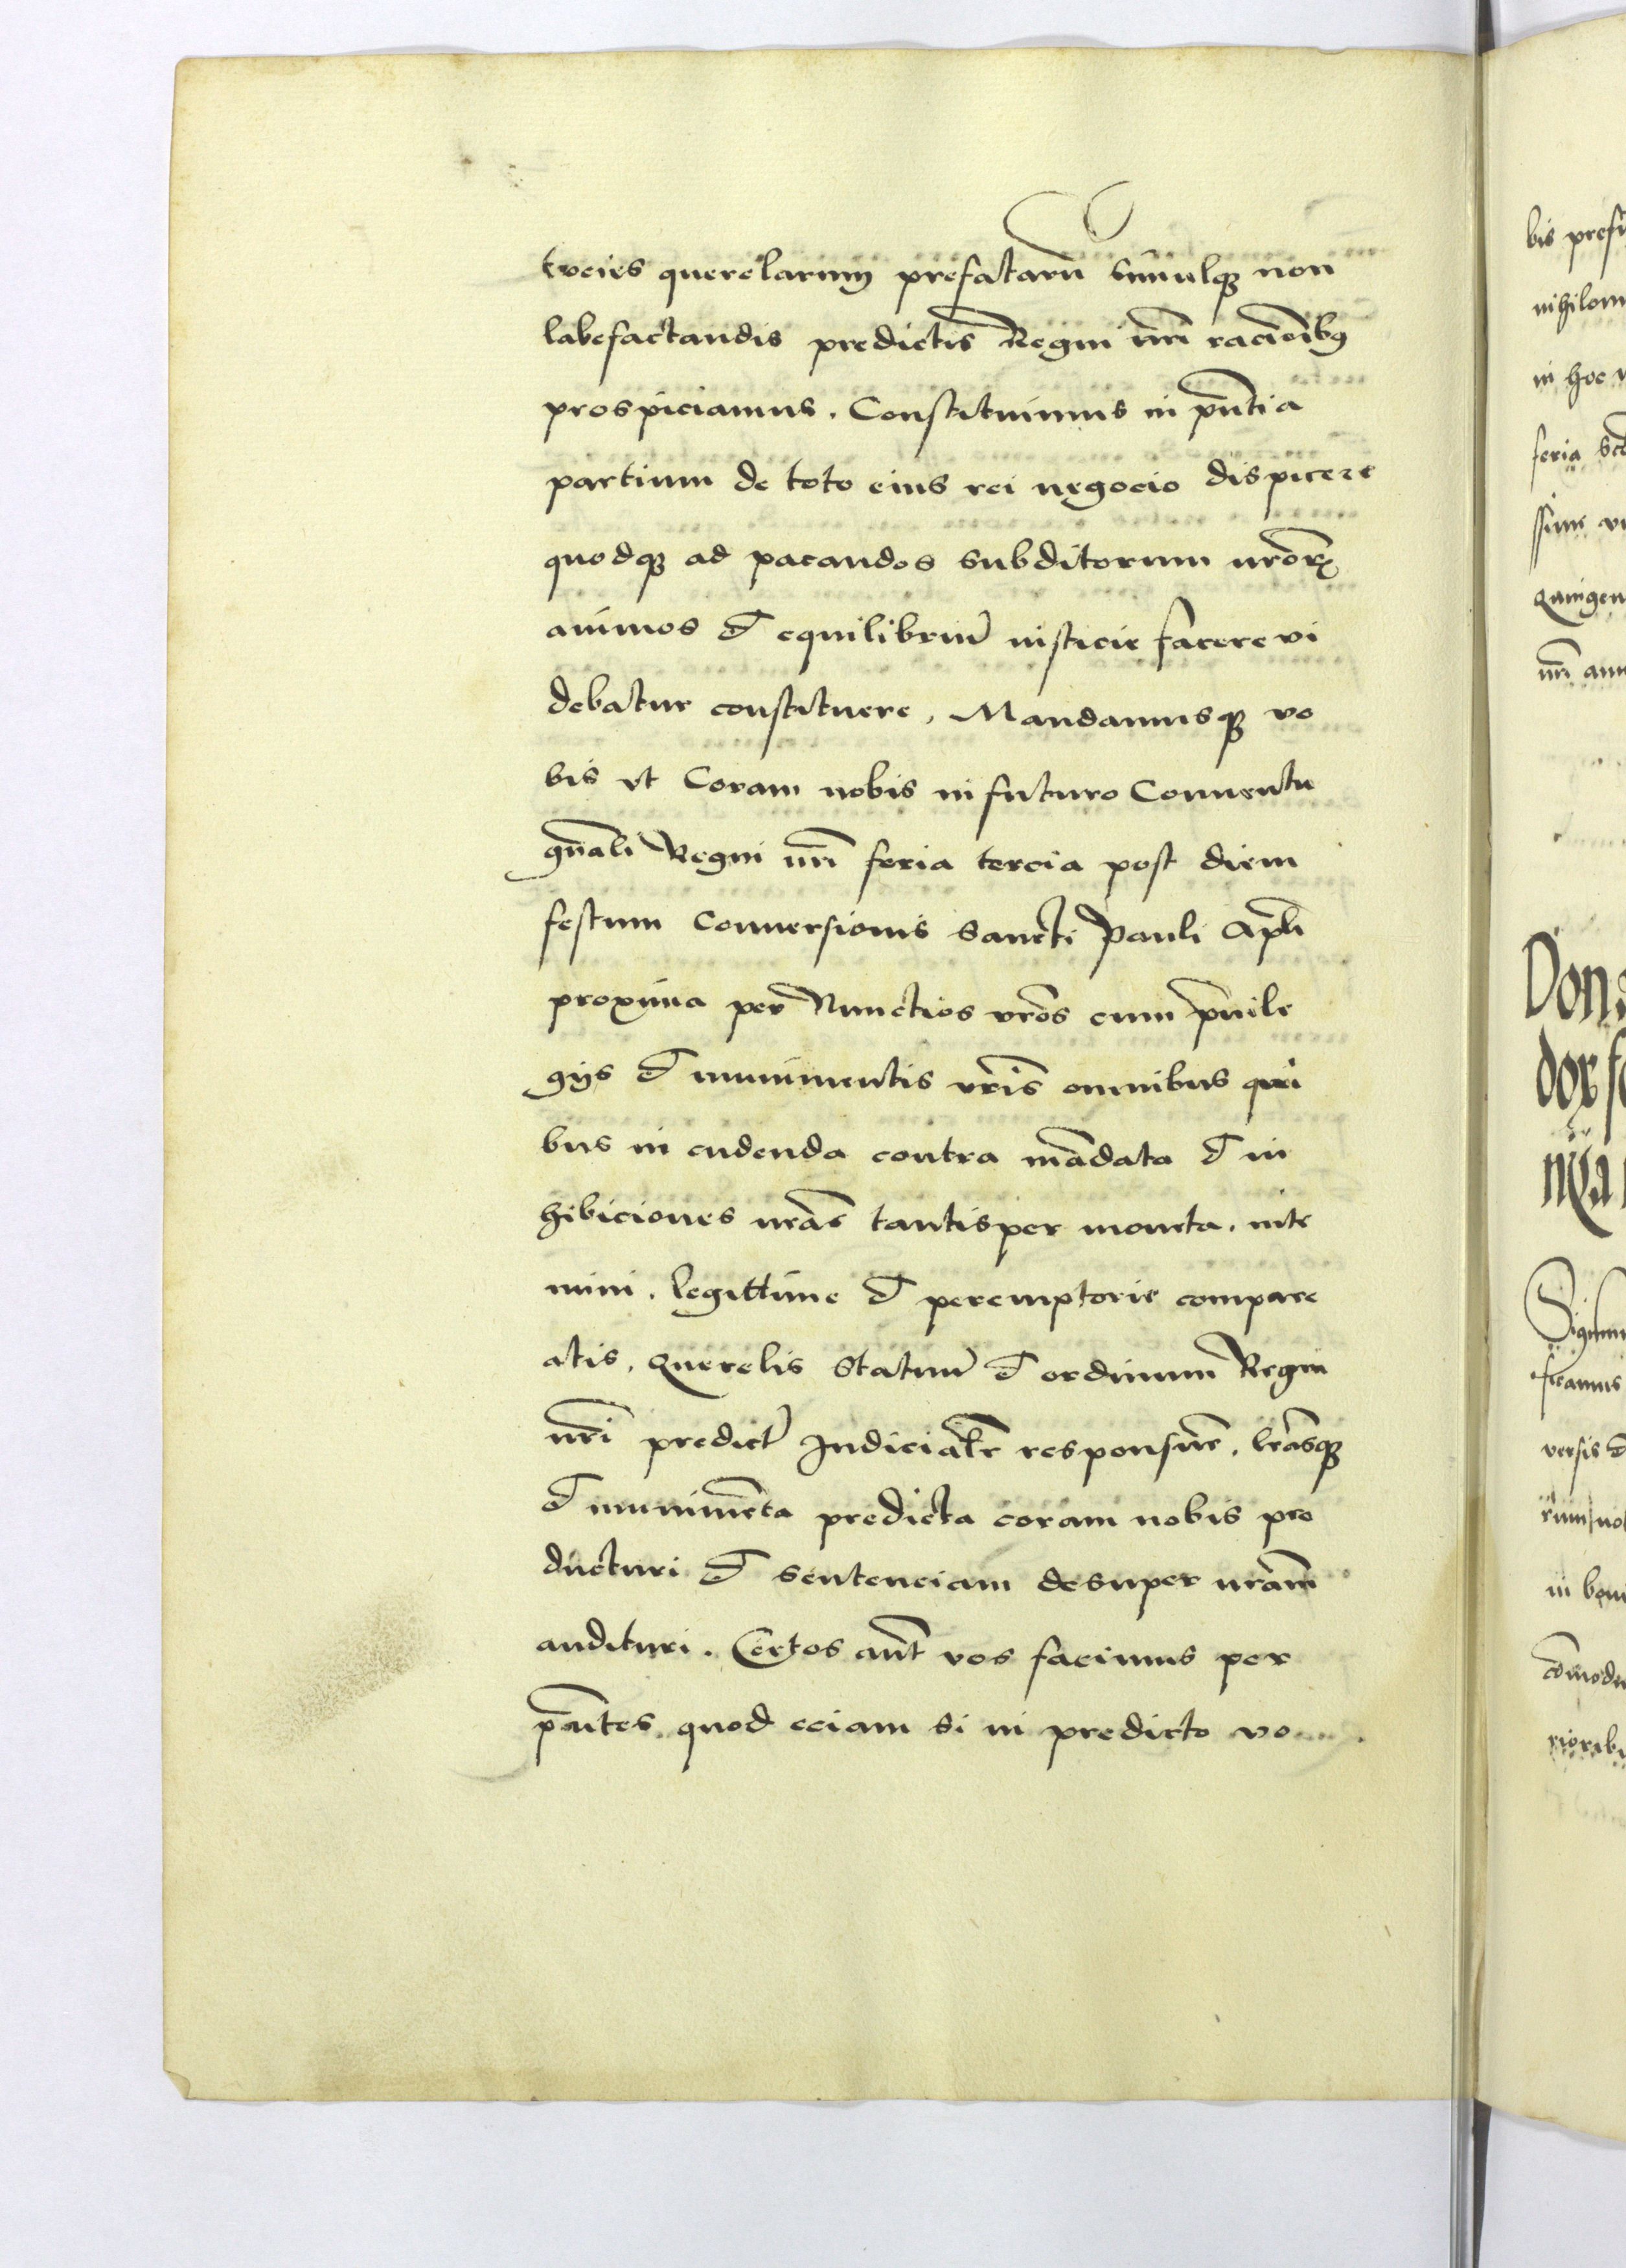 tocies querelarum prefatarū simulqꝫ non
labefactandis predictis Regni nr̄i racionibꝯ
prospiciamus. Constituimus in pn̄tia
partium de toto eius rei negocio dispicere
quodqꝫ ad pacandos subditorum nr̄orꝝ
animos et equilibriū iusticie facere vi
debatur constituere, Mandamusqꝫ vo
bis vt Coram nobis in futuro Conuentu
gn̄ali Regni nr̄i feria tercia post diem
festum Conuersionis Sancti Pauli Apl̄i
proxima per Nunctios vr̄os cum priuile
gijs et munimentis vr̄is omnibus qui
bus in cudenda contra mādata et in
hibiciones nr̄as tantisper moneta. nite
mini. legittime et peremptorie compare
atis, Querelis Statuū et ordinum Regni
nr̄i predict̄ Iudicialr̄ responsure. lr̄asqꝫ
et munimēta predicta coram nobis pro
ducturi et sentenciam desuper nr̄am
audituri. Certos aut̄ vos facimus per
pn̄tes quod eciam si in predicto vo
bis
nihilom
in hoc
feria
ssimi
Quingen
nr̄i ann
Don
dorf
Sigism
ficamus
versis et
rum no
in
cōmode
rioribu